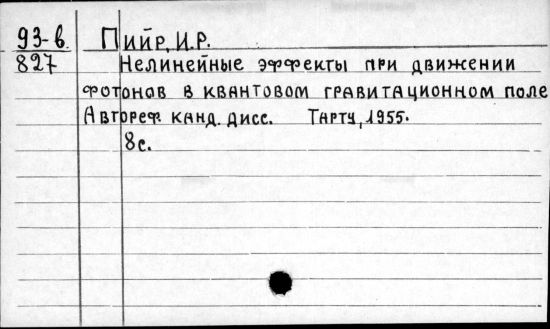 93-в Пийр, И.Р.
827 Нелинейные эффекты при движении
фотонов в квантовом гравитационном поле
Автореф. канд. дисс. Тарту, 1955.
8с.